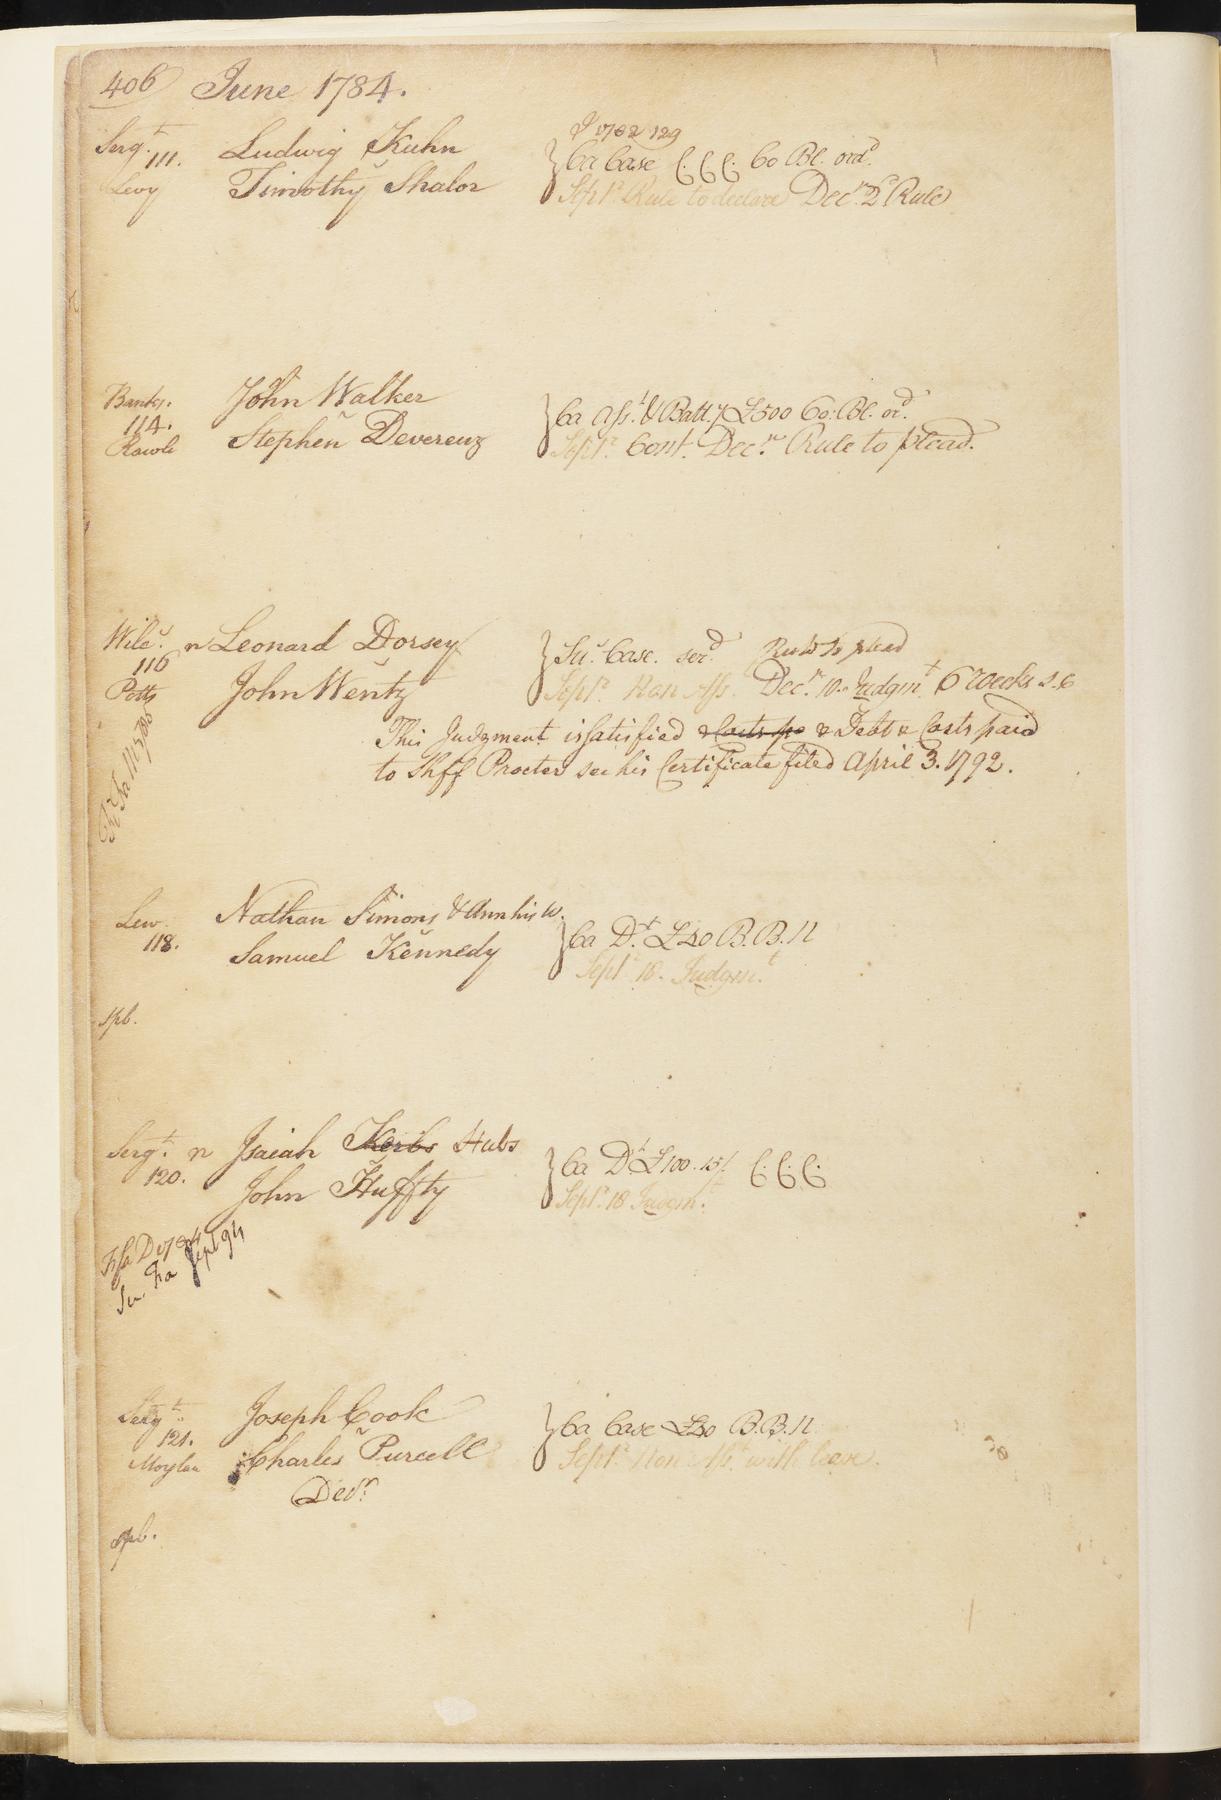 406 June 1784.
J 1782 129
Serg.t Ludwig Kuhn } Ca Case C.C.C. Co Bl. ord.d
111. v
Levy Timothy Shalor Sept.r Rule to declare Dec.r 2.d Rule
Banks. John Walker } Ca Ass.t & Batt.y £500 Co. Bl. or.d
114. v
Rawle Stephen Devereux Sept.r Cont. Dec.r Rule to plead.
Wilc.s n Leonard Dorsey } Su.s Case. ser.d Rule to plead
116 v
Potts John Wentz Sept.r Non Ass. Dec.r 10. Judgm.t 6 Weeks s.e
This Judgment is satisfied & Costs pd & Debt & Costs paid
to Shff Procter see his Certificate filed April 3. 1792.
Lew. Nathan Simons & Ann his w. } Ca D.t £40 B.B.N
118. v
Samuel Kennedy Sept.r 18. Judgm.t
spb.
Serg.t n Isaiah Kerbs Hubs } Ca D.t £100.15/. C.C.C.
120. v
John Huffty Sept.r 18 Judgm.t
Fi fa D 1784
Sept 94
Serg.t Joseph Cook } Ca Case £40 B.B.N
121. v
Moylan Charles Purcell Sept.r Non Ass.t with leave.
Ded.r
spb.